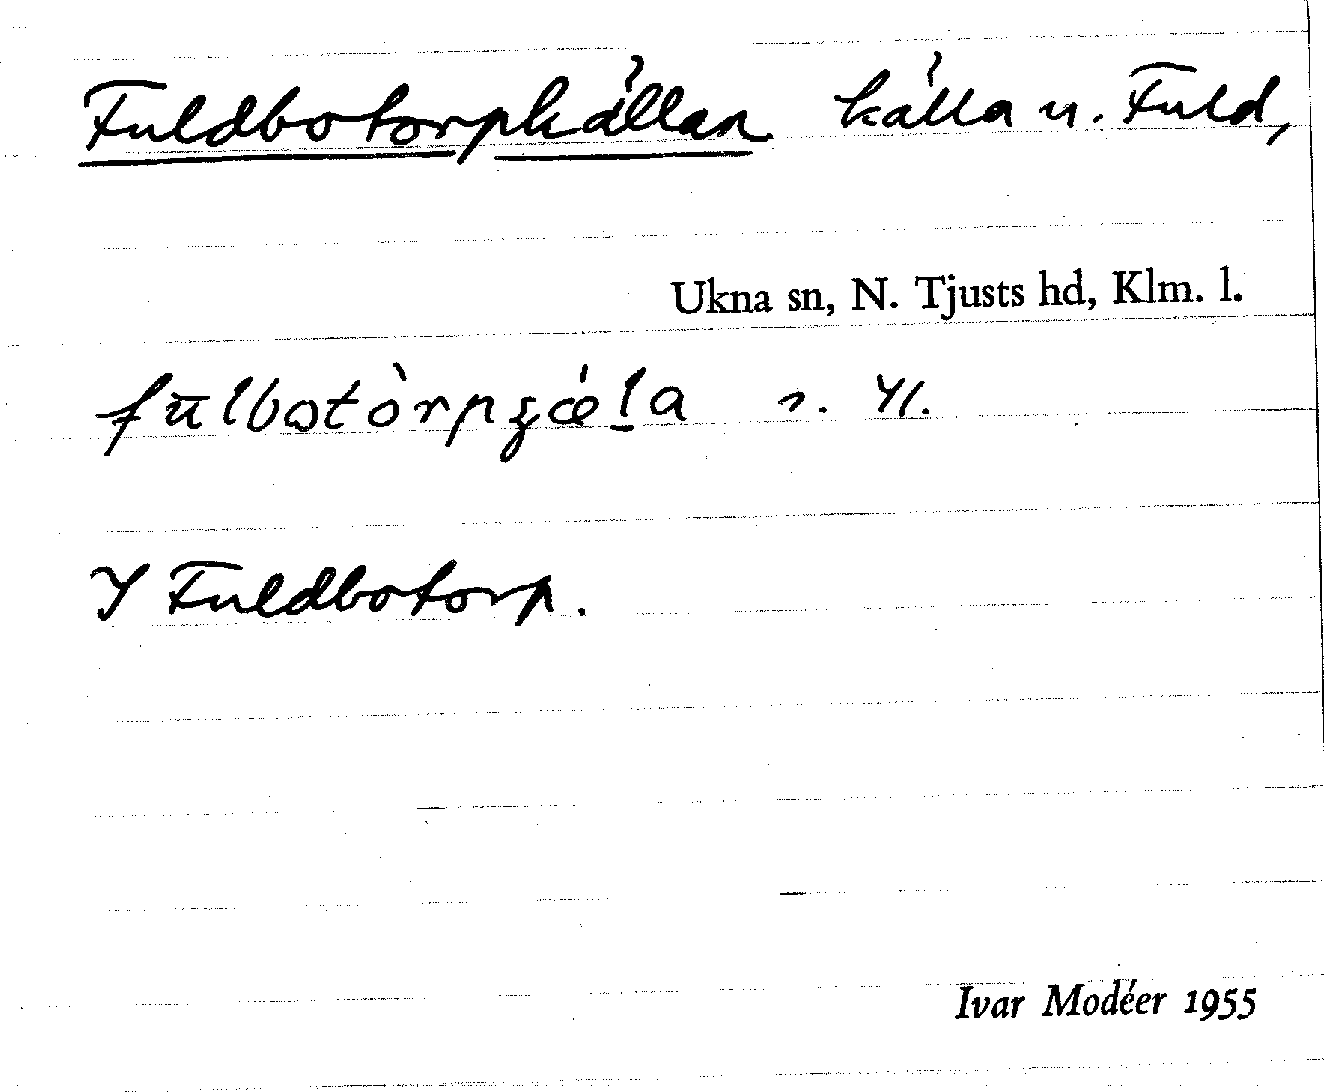 Fuldbotorpkällan källa u. Fuld,
Ukna sn, N. Tjusts hd, Klm. l.
Fuldbotorp.
Ivar Modéer 1955